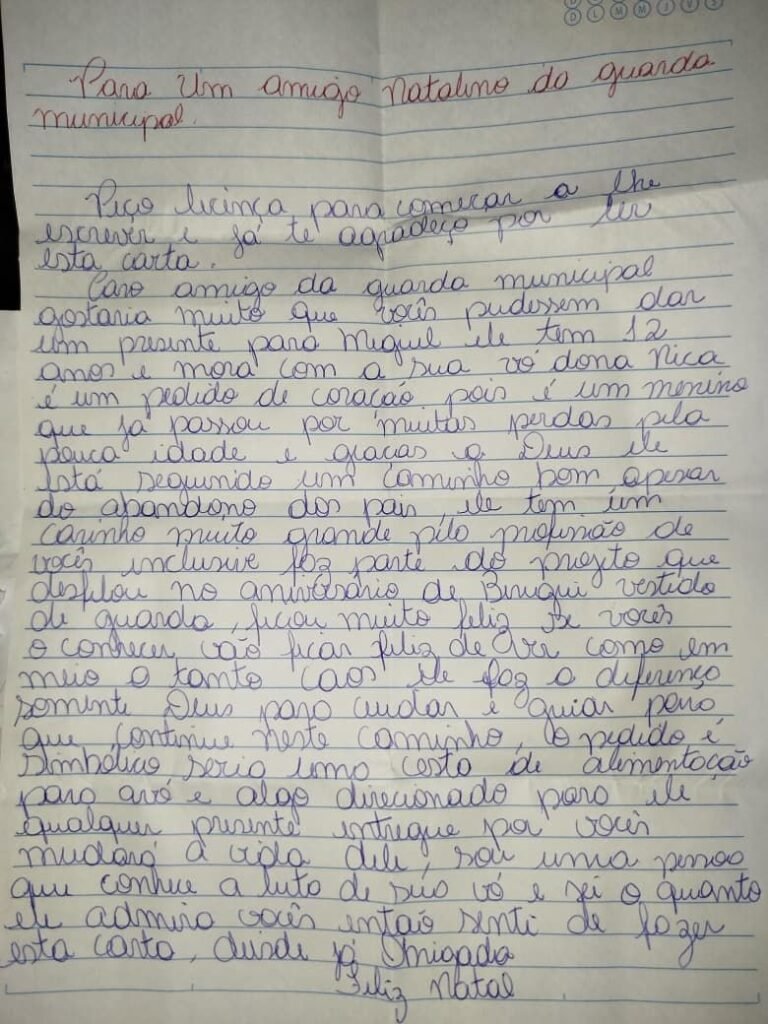 D L M M J V S
Para Um amigo Natalino da guarda
municipal.
Peço licinça para começar a lhe
escrever e já te agradeço por ler
esta carta.
Caro amigo da guarda municipal
gostaria muito que vocês pudessem dar
um presente para Miguel ele tem 12
anos e mora com a sua vó dona Nica
é um pedido de coração pois é um menino
que já passou por muitas perdas pela
pouca idade e graças a Deus ele
está seguindo um caminho bom apesar
do abandono dos pais, ele tem um
carinho muito grande pela profissão de
vocês inclusive faz parte do projeto que
desfilou no aniversário de Birigui vestido
de guarda, ficou muito feliz se vocês
o conhecer vão ficar feliz de ver como em
meio a tanto caos ele faz a diferença
somente Deus para cuidar e guiar para
que continue neste caminho, o pedido é
simbólico seria uma cesta de alimentação
para avó e algo direcionado para ele
qualquer presente entregue por vocês
mudará a vida dele, sou uma pessoa
que conhece a luta de sua vó e sei o quanto
ele admira vocês então senti de fazer
esta carta, desde já Obrigada
Feliz Natal